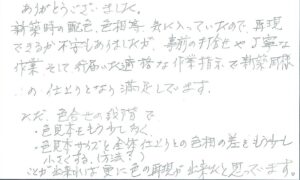 ありがとうございました。
新築時の配色、色相等 気に入っていたので、再現
できるか不安もありましたが、事前の打合せや丁寧な
作業、そして行届いた適格な作業指示で新築同様
の仕上りとなり満足しています。
ただ、色合せの段階で
・色見本をもう少し大きく、
・色見本サイズと全体仕上りとの色相の差をもう少し
小さくする(方法?)
ことが出来れば更に色の再現が出来ると思っています。